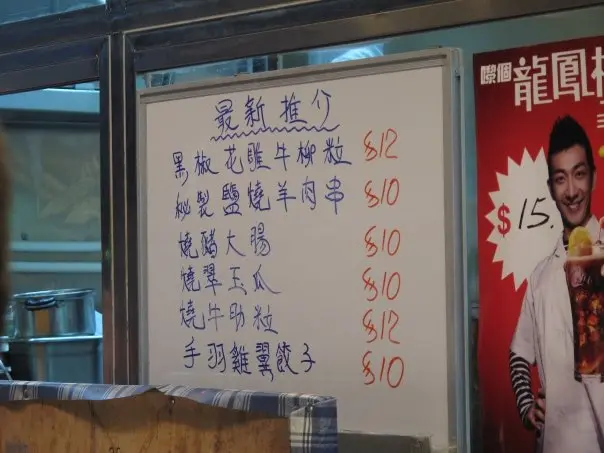 最新推介
黑椒花雕牛柳粒 $12
秘製鹽燒羊肉串 $10
燒豬大腸 $10
燒翠玉瓜 $10
燒牛肋粒 $12
手羽雞翼餃子 $10
嚟個
龍鳳
$15.